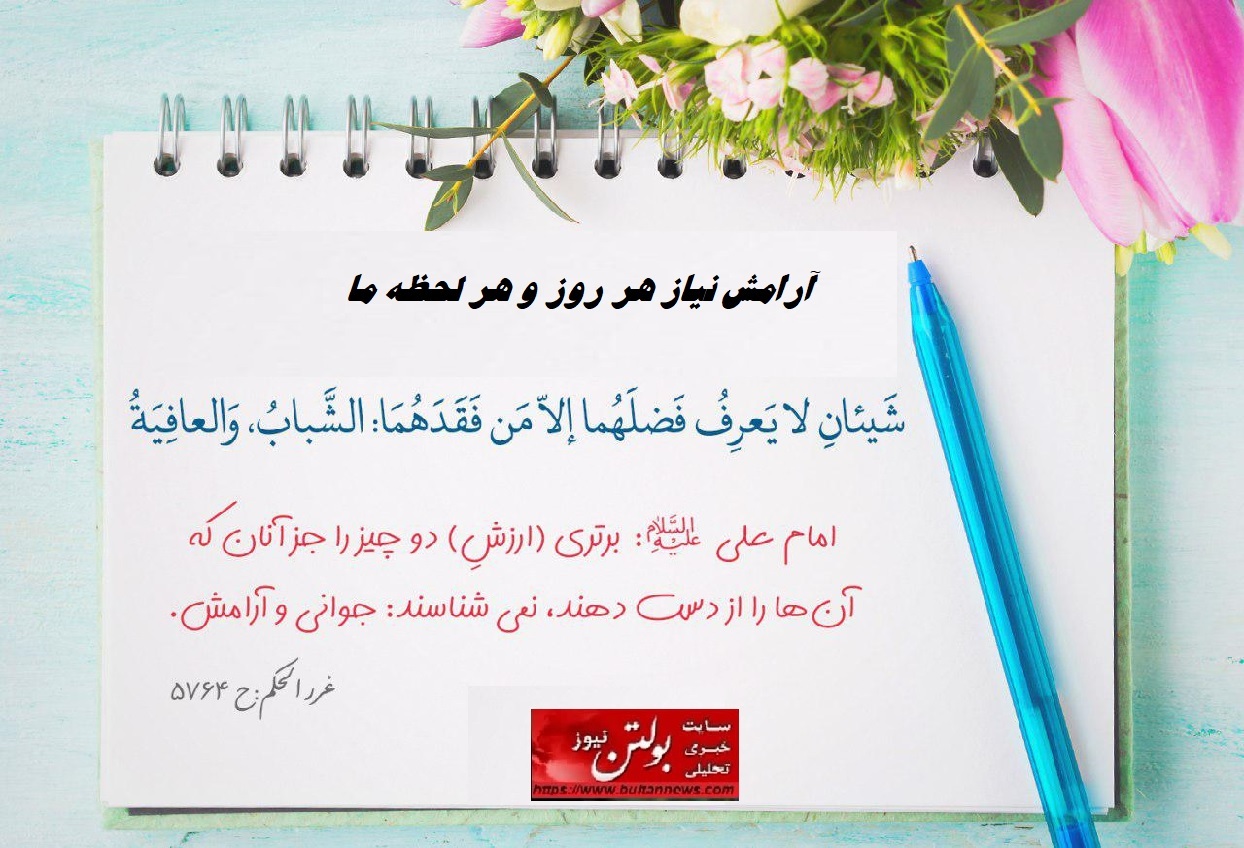 آرامش نیاز هر روز و هر لحظه ما
شَیئانِ لا یَعرِفُ فَضلَهُما إلاّ مَن فَقَدَهُمَا: الشَّبابُ، وَالعافِیَةُ
امام علی علیه‌السّلام: برتری (ارزشِ) دو چیز را جز آنان که
آن‌ها را از دست دهند، نمی شناسند: جوانی و آرامش.
غرر الحکم: ح ۵۷۶۴
سایت
خبری
تحلیلی
بولتن نیوز
https://www.bultannews.com